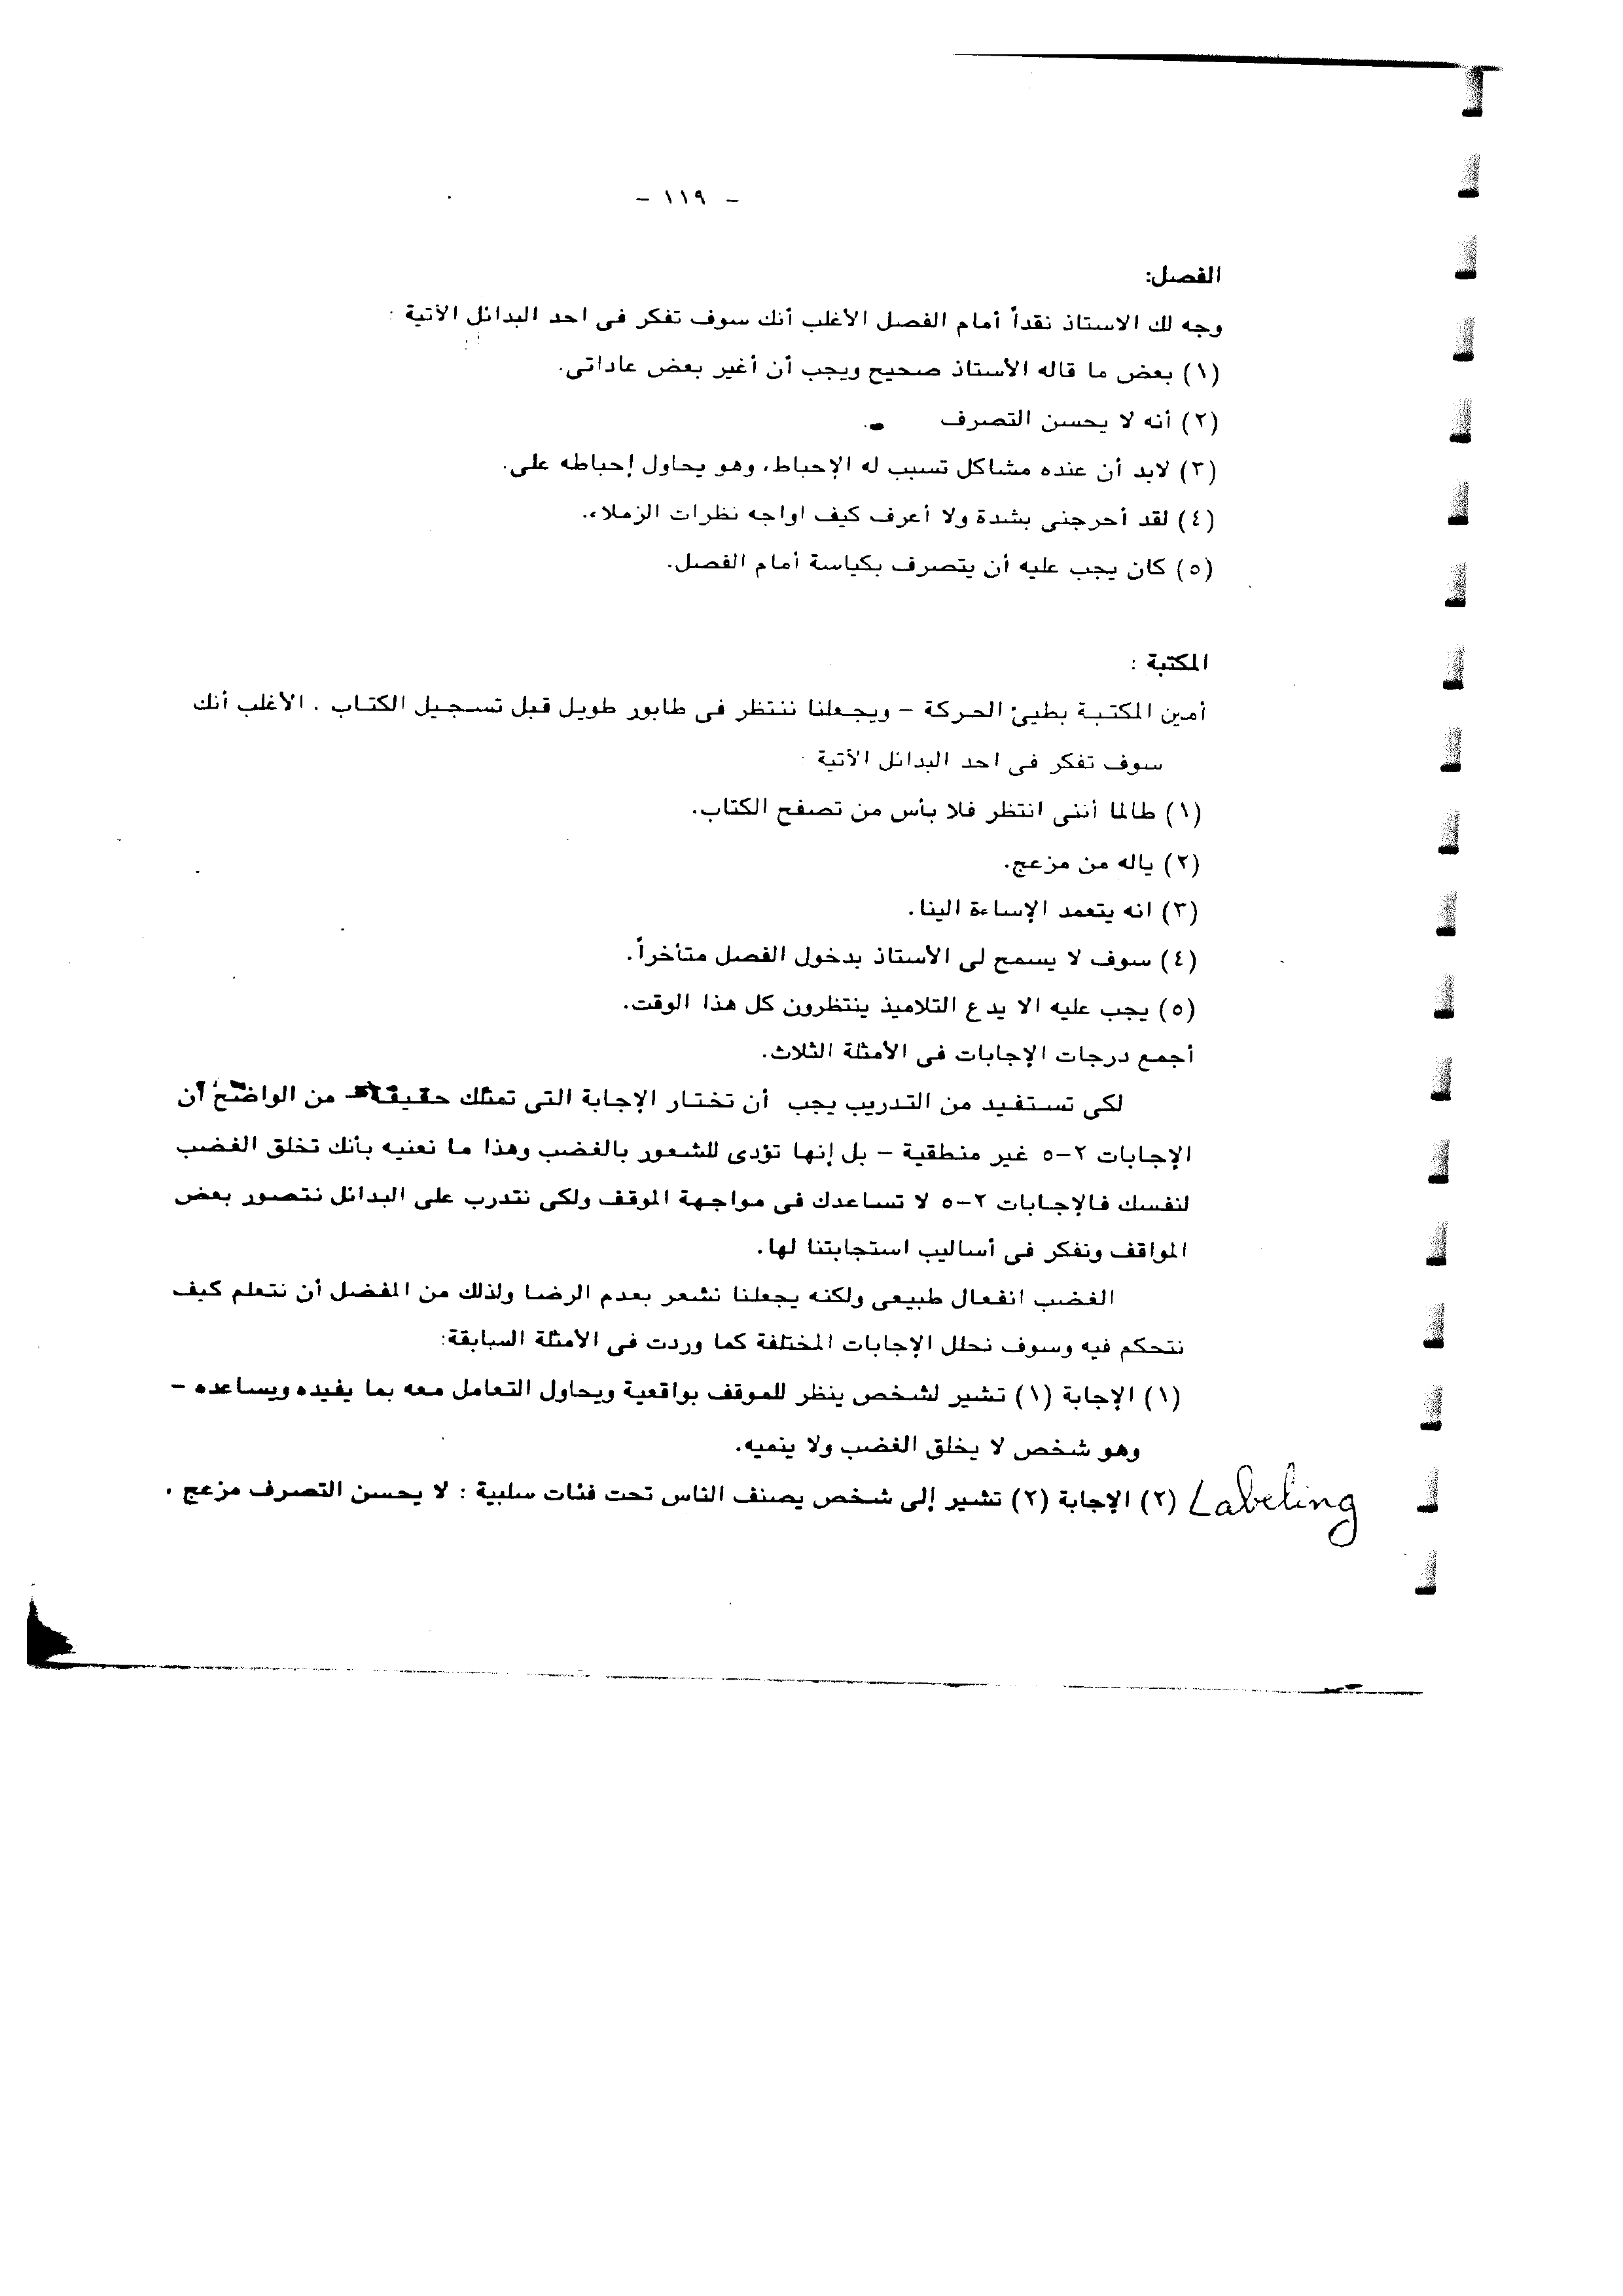 - ١١٩ -
الفصل:
وجه لك الاستاذ نقداً أمام الفصل الأغلب أنك سوف تفكر فى احد البدائل الأتية :
(١) بعض ما قاله الأستاذ صحيح ويجب أن أغير بعض عاداتى.
(٢) أنه لا يحسن التصرف .
(٣) لابد أن عنده مشاكل تسبب له الإحباط، وهو يحاول إحباطه على.
(٤) لقد أحرجنى بشدة ولا أعرف كيف اواجه نظرات الزملاء.
(٥) كان يجب عليه أن يتصرف بكياسة أمام الفصل.
المكتبة :
أمين المكتبة بطيئ الحركة - ويجعلنا ننتظر فى طابور طويل قبل تسجيل الكتاب . الأغلب أنك
سوف تفكر فى احد البدائل الأتية
(١) طالما أننى انتظر فلا بأس من تصفح الكتاب.
(٢) ياله من مزعج.
(٣) انه يتعمد الإساءة الينا.
(٤) سوف لا يسمح لى الأستاذ بدخول الفصل متأخراً.
(٥) يجب عليه الا يدع التلاميذ ينتظرون كل هذا الوقت.
أجمع درجات الإجابات فى الأمثلة الثلاث.
لكى تستفيد من التدريب يجب أن تختار الإجابة التى تمثلك حقيقة - من الواضح أن
الإجابات ٢-٥ غير منطقية - بل إنها تؤدى للشعور بالغضب وهذا ما نعنيه بأنك تخلق الغضب
لنفسك فالإجابات ٢-٥ لا تساعدك فى مواجهة الموقف ولكى نتدرب على البدائل نتصور بعض
المواقف ونفكر فى أساليب استجابتنا لها.
الغضب انفعال طبيعى ولكنه يجعلنا نشعر بعدم الرضا ولذلك من المفضل أن نتعلم كيف
نتحكم فيه وسوف نحلل الإجابات المختلفة كما وردت فى الأمثلة السابقة:
(١) الإجابة (١) تشير لشخص ينظر للموقف بواقعية ويحاول التعامل معه بما يفيده ويساعده -
وهو شخص لا يخلق الغضب ولا ينميه.
Labeling (٢) الإجابة (٢) تشير إلى شخص يصنف الناس تحت فئات سلبية : لا يحسن التصرف مزعج .